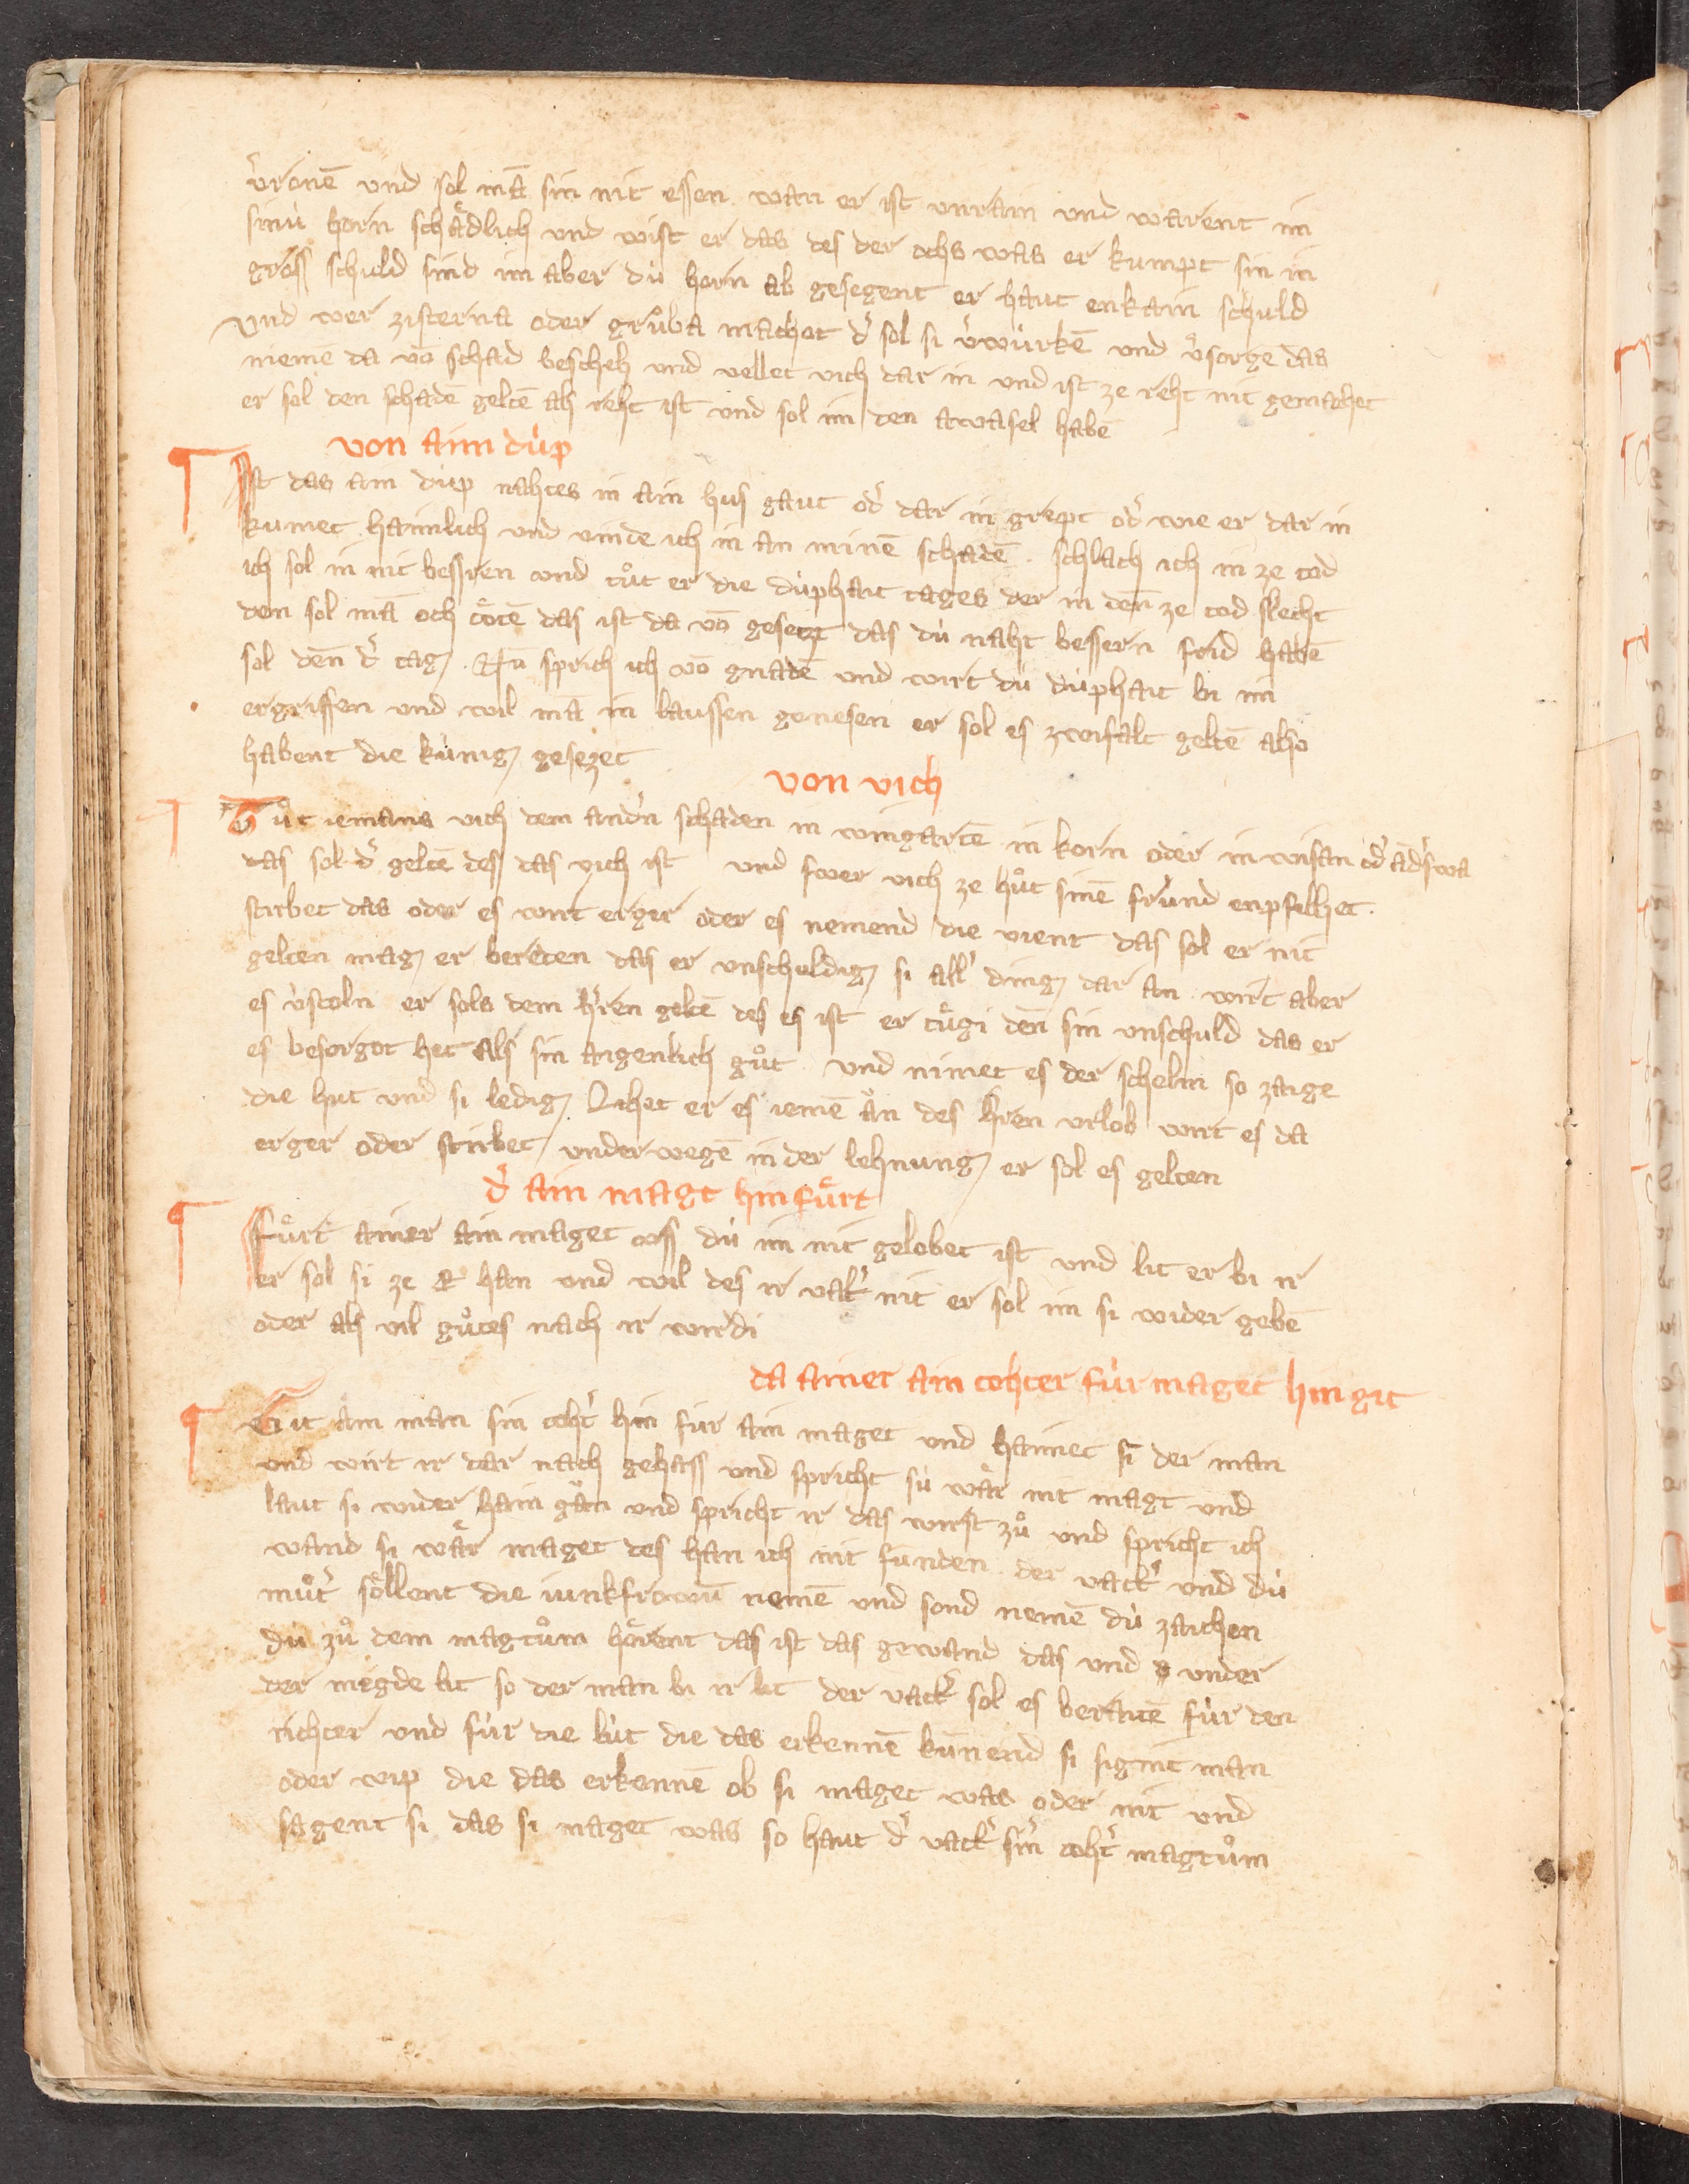 v̾rǒnē vnd sol mā sin nit essen wan er ist vnrain vnd warent im
sinu̇ horn schådlich vnd wist er das des der ochs was er kumpt sin in
gross schuld sind im aber du̇ horn ab gesegent er haut enkain schuld
Vnd wer zisterna oder gru̇ba machet d̾ sol si v̾wu̇rkē vnd v̾sorge das
niemē da vō schad bescheh vnd vellet vich dar in vnd ist ze reht nit gemachet
er sol den schadē geltē als reht ist vnd sol im den awasel habē
von aim du̇p
Ist das ain du̇p nahtes in ain hus gaut od̾ dar in grept od̾ wie er dar in
kumet haimlich vnd vinde ich in an minē schadē . schlach ich in ze tod
ich sol in nit bessren vnd tůt er die du̇phait tages der in den̄ ze tod slecht
den sol mā och tötē das ist da vō gesetzt das du̇ naht bessern frid habē
sol den̄ d̾ tag . Nū sprich ich vō gnadē vnd wirt du̇ du̇phait bi im
ergriffen vnd wil mā in laussen genesen er sol es zwifalt geltē also
habent die ku̇nig gesezet
von vich
Tůt iemans vich dem andn̾ schaden in wingartē in korn oder in wisan od̾ ād̾swa
das sol d̾ geltē des das vich ist vnd swer vich ze hůt sinē fru̇nd enpfilhet .
stirbet das oder es wirt erger oder es nemend die vient das sol er nit
gelten mag er bereden das er vnschuldig si all̾ ding dar an wirt aber
es v̾stoln er sols dem h̾ren geltē des es ist er tu̇gi den̄ sin vnschuld das er
es besorgot het Als sin aigenlich gůt vnd nimet es der schelm so zaige
die hut vnd si ledig Lihet er es iemē ån des h̾ren vrlob wirt es da
erger oder stirbet vnderwegē in der lehnung er sol es gelten
d̾ ain magt hin fůrt
Fůrt ainer ain maget vss du̇ im nit gelobet ist vnd lit er bi ir
er sol si ze E han vnd wil des ir vatt̾ nit er sol im si wider gebē
oder als vil gůtes nach ir wirdi
da ainer ain tohter fu̇r maget hin git
Git ain man sin toht̾ hin fu̇r ain maget vnd haimet si der man
vnd wirt ir dar nach gehass vnd spricht su̇ wår nit magt vnd
laut si wider hain gån vnd spricht ir das wirst zů vnd spricht ich
wand si wår maget des han ich nit funden der vatt̾ vnd du̇
můt̾ söllent die iunkfrowū nemē vnd sond nemē du̇ zaichen
du̇ zů dem magtům hörent das ist das gewand das vnd vnder
der megde lit so der man bi ir lit der vatt̾ sol es beraitē fu̇r den
richter vnd fu̇r die lu̇t die das erkennē ku̇nnend si sigint man
oder wip die das erkennē ob si maget was oder nit vnd
sagent si das si maget was so haut d̾ vatt̾ sin̾ toht̾ magtům